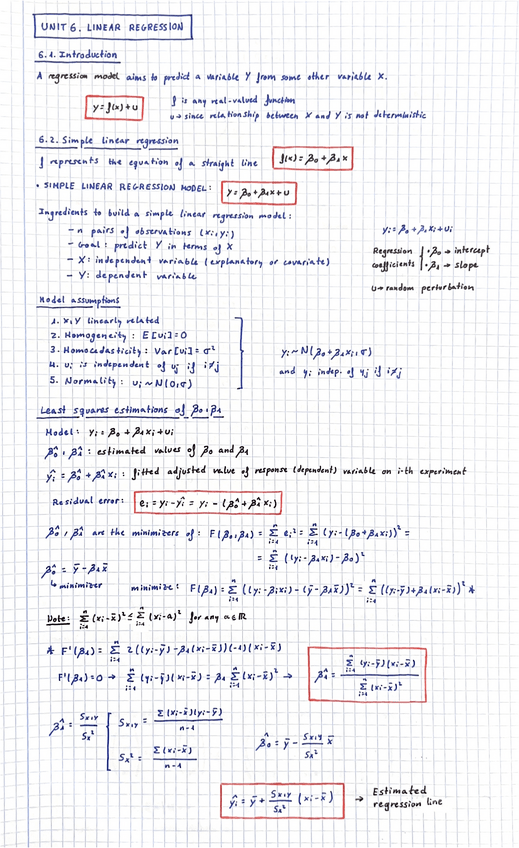 UNIT 6. LINEAR REGRESSION
6.1. Introduction
A regression model aims to predict a variable Y from some other variable X.
y = f(x) + u
f is any real-valued function
u → since relationship between X and Y is not deterministic
6.2. Simple linear regression
f represents the equation of a straight line
f(x) = β₀ + β₁x
• SIMPLE LINEAR REGRESSION MODEL: y = β₀ + β₁x + u
Ingredients to build a simple linear regression model:
– n pairs of observations (xi, yi)
– Goal: predict Y in terms of X
– X: independent variable (explanatory or covariate)
– Y: dependent variable
yi = β₀ + β₁xi + ui
Regression coefficients
• β₀ → intercept
• β₁ → slope
u → random perturbation
Model assumptions
1. X, Y linearly related
2. Homogeneity: E[ui] = 0
3. Homocedasticity: Var[ui] = σ²
4. ui is independent of uj if i≠j
5. Normality: ui ~ N(0, σ)
yi ~ N(β₀ + β₁xi, σ)
and yi indep. of yj if i≠j
Least squares estimations of β₀, β₁
Model: yi = β₀ + β₁xi + ui
β₀^, β₁^ : estimated values of β₀ and β₁
yi^ = β₀^ + β₁^xi : fitted adjusted value of response (dependent) variable on i-th experiment
Residual error: ei = yi - yi^ = yi - (β₀^ + β₁^xi)
β₀^, β₁^ are the minimizers of: F(β₀, β₁) = Σ(i=1..n) ei² = Σ(i=1..n) (yi - (β₀ + β₁xi))² =
= Σ(i=1..n) ((yi - β₁xi) - β₀)²
β₀^ = ȳ - β₁x̄
↳ minimizer
minimize: F(β₁) = Σ(i=1..n) ((yi - β₁xi) - (ȳ - β₁x̄))² = Σ(i=1..n) ((yi - ȳ) + β₁(xi - x̄))² *
Note: Σ(i=1..n) (xi - x̄)² ≤ Σ(i=1..n) (xi - a)² for any a∈ℝ
* F'(β₁) = Σ(i=1..n) 2((yi - ȳ) - β₁(xi - x̄))(-1)(xi - x̄)
F'(β₁) = 0 → Σ(i=1..n) (yi - ȳ)(xi - x̄) = β₁ Σ(i=1..n) (xi - x̄)² →
β₁^ = Σ(i=1..n) (yi - ȳ)(xi - x̄) / Σ(i=1..n) (xi - x̄)²
β₁^ = Sx,y / Sx²
Sx,y = Σ(xi - x̄)(yi - ȳ) / n-1
Sx² = Σ(xi - x̄)² / n-1
β₀^ = ȳ - Sx,y / Sx² x̄
yi^ = ȳ + Sx,y / Sx² (xi - x̄)
→ Estimated
regression line